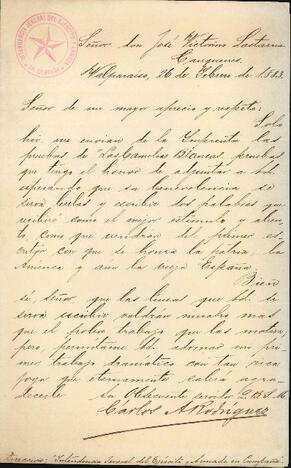 INTENDENCIA JENERAL DEL EJERCITO Y ARMADA
EN CAMPAÑA
Señor don José Victorino Lastarria
Cauquenes.
Valparaiso, 26 de Febrero de 1883.
Señor de mi mayor aprecio y respeto:
Solo
hoi me envian de la Imprenta las
pruebas de Las Camelias Blancas, pruebas
que tengo el honor de adjuntar a Ud.
esperando que su benevolencia se
servirá leerlas y escribir dos palabras que
recibiré como el mejor estímulo y alien-
to, como que vendrán del primer es-
critor con que se honra la patria, la
America y aun la vieja España.
Bien
sé, señor, que las líneas que Ud. se
sirva escribir valdrán mucho mas
que el pobre trabajo que las motiva,
pero permítame Ud. adornar mi pri-
mer trabajo dramático con tan rica
joya que eternamente sabrá agra-
decerle su Obsecuente servidor Q.B.S.M.
Carlos A Rodriguez
Direccion: "Intendencia Jeneral del Ejército y Armada en Campaña".